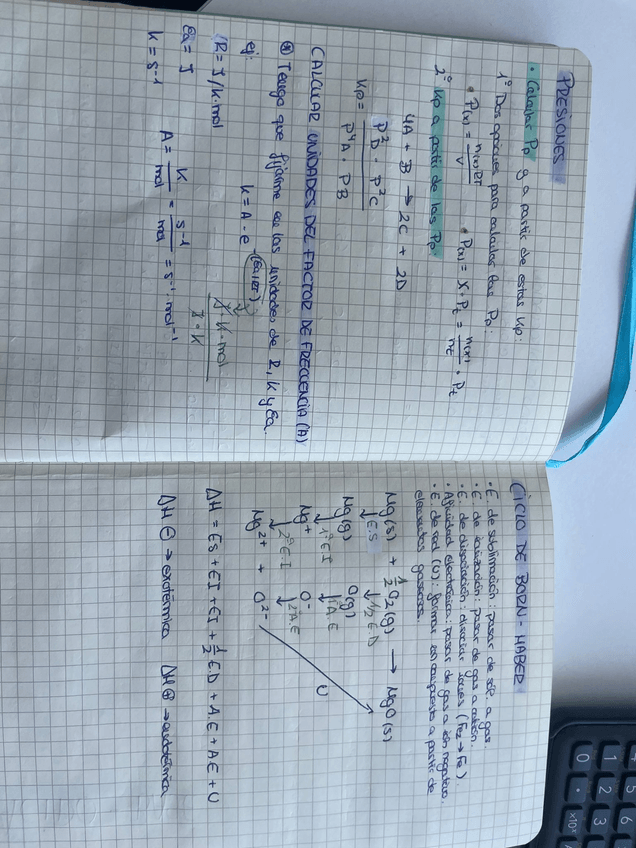 PRESIONES
• Calcular Pp y a partir de estas Kp:
1º Dos opciones para calcular las Pp:
• P(x) = n(x)RT / V • P(x) = X · Pt = n(x) / nt · Pt
2º Kp a partir de las Pp
4A + B → 2C + 2D
Kp = P²D · P²C / P⁴A · PB
CALCULAR UNIDADES DEL FACTOR DE FRECUENCIA (A)
Tengo que fijarme en las unidades de R, K y Ea.
ej: K = A · e^-(Ea/RT)
R = J/K·mol J · K · mol / J · K
Ea = J
K = s⁻¹ A = K / mol = s⁻¹ / mol = s⁻¹ · mol⁻¹
CICLO DE BORN - HABER
• E. de sublimación: pasar de sól. a gas
• E. de ionización: pasar de gas a catión.
• E. de disociación: disociar (Fe2 → Fe)
• Afinidad electrónica: pasar de gas a ión negativo
• E. de red (U): formar un compuesto a partir de
elementos gaseosos.
Mg(s) + ½ O2(g) → MgO(s)
↓ E.S ↓ 1/2 E.D
Mg(g) O(g)
↓ 1ª E.I ↓ 1ªA.E
Mg+ O⁻ U
↓ 2ª E.I ↓ 2ªA.E
Mg²⁺ + O²⁻
ΔH = Es + EI + EI + ½ ED + A.E + A.E + U
ΔH ⊖ → exotérmica ΔH ⊕ → endotérmica
5 6
1 2 3
0 • ×10ˣ